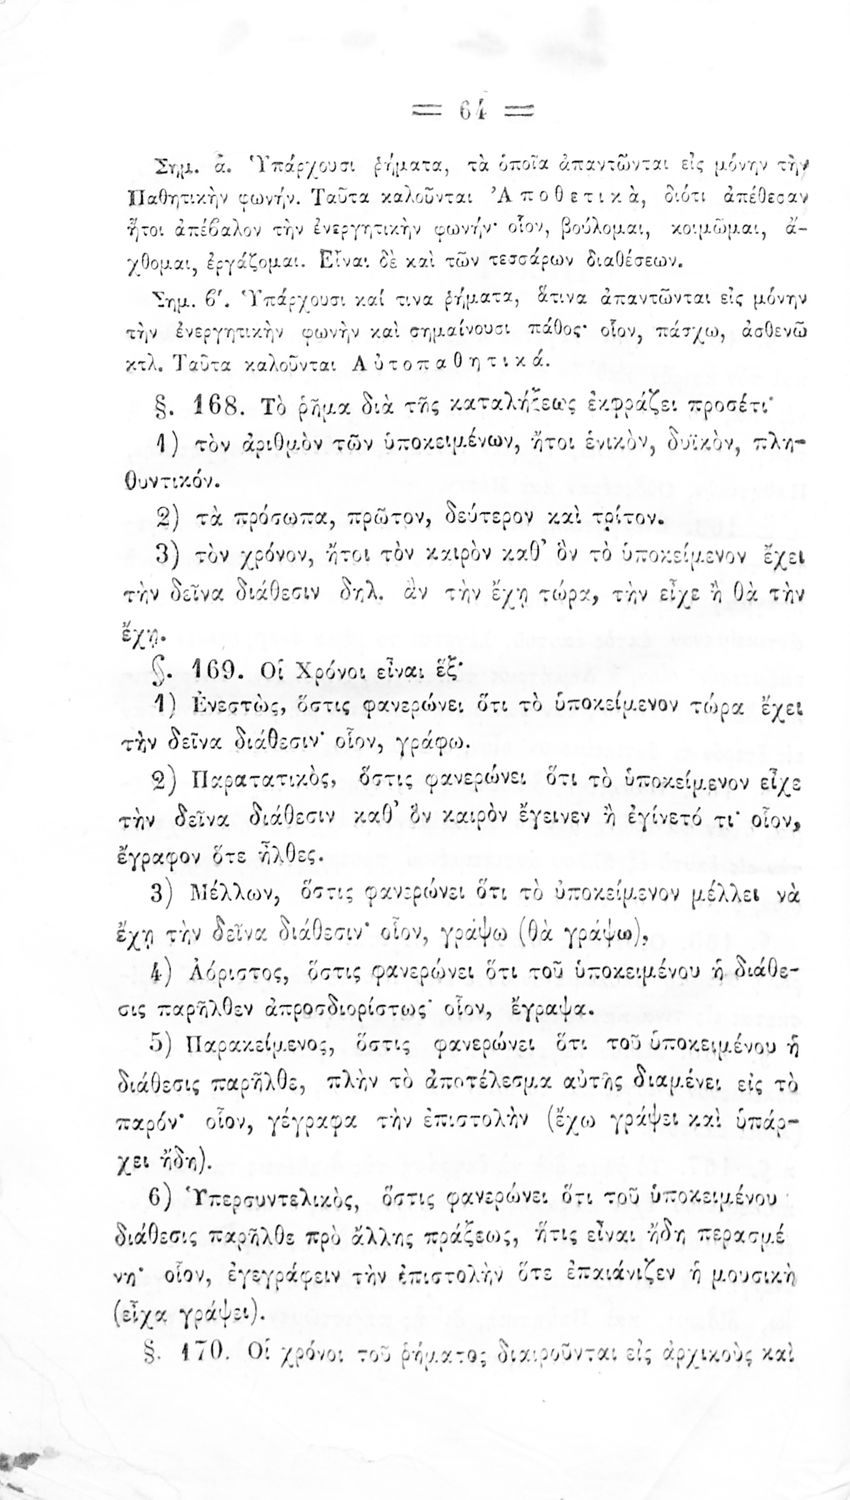 = 64 =
Σημ. ά. Ὑπάρχουσι ῥήματα, τὰ ὁποῖα ἀπαντῶνται εἰς μόνην τὴν
Παθητικὴν φωνήν. Ταῦτα καλοῦνται Ἀποθετικὰ, διότι ἀπέθεσαν
ἤτοι ἀπέβαλον τὴν ἐνεργητικὴν φωνήν· οἷον, βούλομαι, κοιμῶμαι, ἄ-
χθομαι, ἐργάζομαι. Εἶναι δὲ καὶ τῶν τεσσάρων διαθέσεων.
Σημ. β'. Ὑπάρχουσι καί τινα ῥήματα, ἅτινα ἀπαντῶνται εἰς μόνην
τὴν ἐνεργητικὴν φωνὴν καὶ σημαίνουσι πάθος· οἷον, πάσχω, ἀσθενῶ
κτλ. Ταῦτα καλοῦνται Αὐτοπαθητικά.
§. 168. Τὸ ῥῆμα διὰ τῆς καταλήξεως ἐκφράζει προσέτι·
1) τὸν ἀριθμὸν τῶν ὑποκειμένων, ἤτοι ἑνικὸν, δυϊκὸν, πλη-
θυντικόν.
2) τὰ πρόσωπα, πρῶτον, δεύτερον καὶ τρίτον.
3) τὸν χρόνον, ἤτοι τὸν καιρὸν καθ' ὃν τὸ ὑποκείμενον ἔχει
τὴν δεῖνα διάθεσιν δηλ. ἂν τὴν ἔχῃ τώρα, τὴν εἶχε ἢ θὰ τὴν
ἔχῃ.
§. 169. Οἱ Χρόνοι εἶναι ἕξ·
1) Ἐνεστὼς, ὅστις φανερώνει ὅτι τὸ ὑποκείμενον τώρα ἔχει
τὴν δεῖνα διάθεσιν· οἷον, γράφω.
2) Παρατατικὸς, ὅστις φανερώνει ὅτι τὸ ὑποκείμενον εἶχε
τὴν δεῖνα διάθεσιν καθ' ὃν καιρὸν ἔγεινεν ἢ ἐγίνετό τι· οἷον,
ἔγραφον ὅτε ἦλθες.
3) Μέλλων, ὅστις φανερώνει ὅτι τὸ ὑποκείμενον μέλλει νὰ
ἔχῃ τὴν δεῖνα διάθεσιν· οἷον, γράψω (θὰ γράψω),
4) Ἀόριστος, ὅστις φανερώνει ὅτι τοῦ ὑποκειμένου ἡ διάθε-
σις παρῆλθεν ἀπροσδιορίστως· οἷον, ἔγραψα.
5) Παρακείμενος, ὅστις φανερώνει ὅτι τοῦ ὑποκειμένου ἡ
διάθεσις παρῆλθε, πλὴν τὸ ἀποτέλεσμα αὐτῆς διαμένει εἰς τὸ
παρόν· οἷον, γέγραφα τὴν ἐπιστολὴν (ἔχω γράψει καὶ ὑπάρ-
χει ἤδη).
6) Ὑπερσυντελικὸς, ὅστις φανερώνει ὅτι τοῦ ὑποκειμένου
διάθεσις παρῆλθε πρὸ ἄλλης πράξεως, ἥτις εἶναι ἤδη περασμέ
νη· οἷον, ἐγεγράφειν τὴν ἐπιστολὴν ὅτε ἐπαιάνιζεν ἡ μουσικὴ
(εἶχα γράψει).
§. 170. Οἱ χρόνοι τοῦ ῥήματος διαιροῦνται εἰς ἀρχικοὺς καὶ